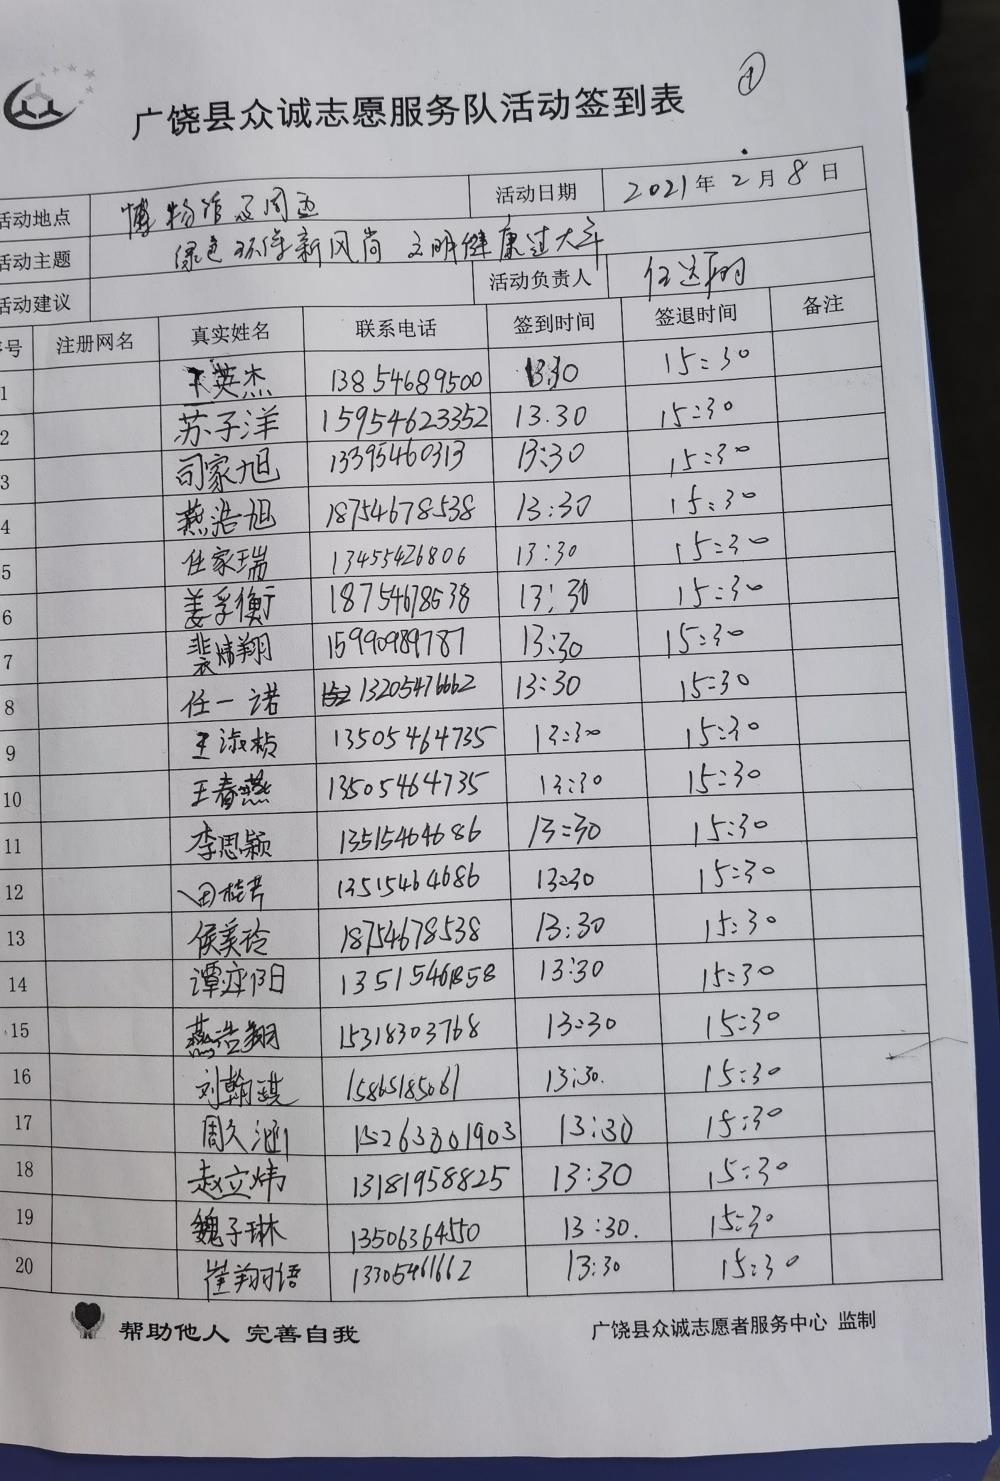 ①
广饶县众诚志愿服务队活动签到表
活动地点 博物馆及周边 活动日期 2021年2月8日
活动主题 绿色环保新风尚 文明健康过大年
活动建议 活动负责人 任达翔
序号 注册网名 真实姓名 联系电话 签到时间 签退时间 备注
1 王英杰 13854689500 13:30 15:30
2 苏子洋 15954623352 13.30 15:30
3 司家旭 13395460313 13:30 15:30
4 燕浩旭 18754678538 13:30 15:30
5 任家瑞 13455426806 13:30 15:30
6 姜孚衡 18754678538 13:30 15:30
7 裴炜翔 15990989787 13:30 15:30
8 任一诺 13205476662 13:30 15:30
9 王淑桢 13505464735 13:30 15:30
10 王春燕 13505464735 13:30 15:30
11 李思颖 13515464686 13:30 15:30
12 田桂芹 13515464686 13:30 15:30
13 侯美玲 18754678538 13:30 15:30
14 谭亦阳 13:30 15:30
15 燕浩翔 15318303768 13:30 15:30
16 刘翰琪 15865185061 13:30. 15:30
17 周久涵 15263801903 13:30 15:30
18 赵立炜 13181958825 13:30 15:30
19 魏子琳 13506364550 13:30. 15:30
20 崔翔语 13305461662 13:30 15:30
帮助他人 完善自我 广饶县众诚志愿者服务中心 监制